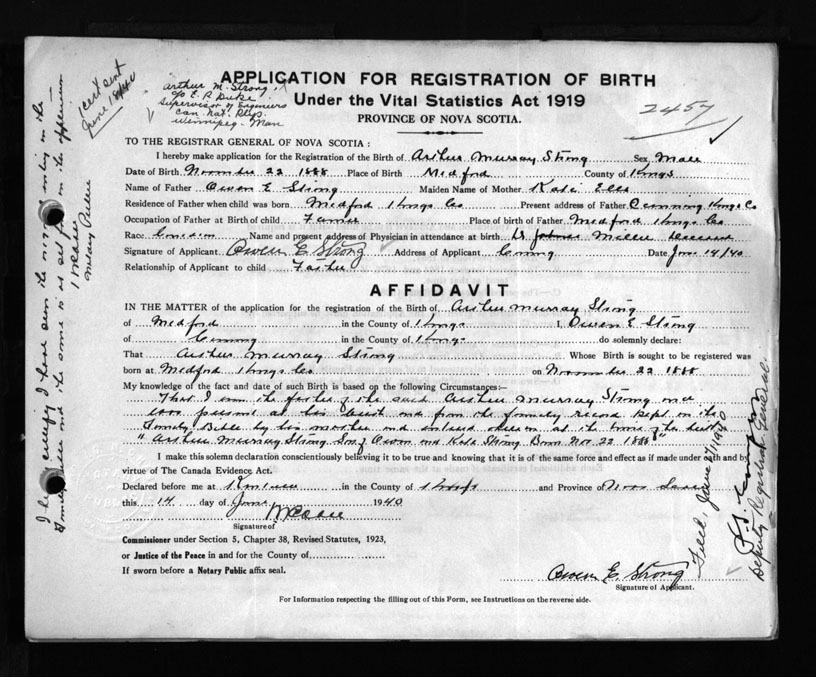 APPLICATION FOR REGISTRATION OF BIRTH
Under the Vital Statistics Act 1919
PROVINCE OF NOVA SCOTIA.
2457
Arthur M. Strong
c/o E. P. Duke
Supervisor of Engineers
Can. Nat. Rlys.
Winnipeg. Man
cert sent
June 18/40
TO THE REGISTRAR GENERAL OF NOVA SCOTIA:
I hereby make application for the Registration of the Birth of Arthur Murray Strong Sex Male
Date of Birth November 22 1888 Place of Birth Medford County of Kings
Name of Father Owen E Strong Maiden Name of Mother Kate Ells
Residence of Father when child was born Medford Kings Co Present address of Father Canning Kings Co
Occupation of Father at Birth of child Farmer Place of birth of Father Medford Kings Co
Race Canadian Name and present address of Physician in attendance at birth Dr Miller deceased
Signature of Applicant Owen E Strong Address of Applicant Canning Date June 14/40
Relationship of Applicant to child Father
AFFIDAVIT
IN THE MATTER of the application for the registration of the Birth of Arthur Murray Strong
of Medford in the County of Kings I, Owen E Strong
of Canning in the County of Kings do solemnly declare:
That Arthur Murray Strong Whose Birth is sought to be registered was
born at Medford Kings Co on November 22 1888
My knowledge of the fact and date of such Birth is based on the following Circumstances:—
That I am the father of the said Arthur Murray Strong and
was present at his birth and from the family record kept in the
Family Bible by his mother and entered therein at the time of his birth
"Arthur Murray Strong Son of Owen and Kate Strong Born Nov. 22 1888"
I make this solemn declaration conscientiously believing it to be true and knowing that it is of the same force and effect as if made under oath and by
virtue of The Canada Evidence Act.
Declared before me at in the County of Kings and Province of Nova Scotia
this 14 day of June 1940
Signature of
Commissioner under Section 5, Chapter 38, Revised Statutes, 1923,
or Justice of the Peace in and for the County of
If sworn before a Notary Public affix seal.
Owen E. Strong
Signature of Applicant.
For Information respecting the filling out of this Form, see Instructions on the reverse side.
I hereby certify I have seen the record entry in the
Family Bible and the same is as set forth in the application
Notary Public
Filed, June 17/1940
Deputy Registrar General